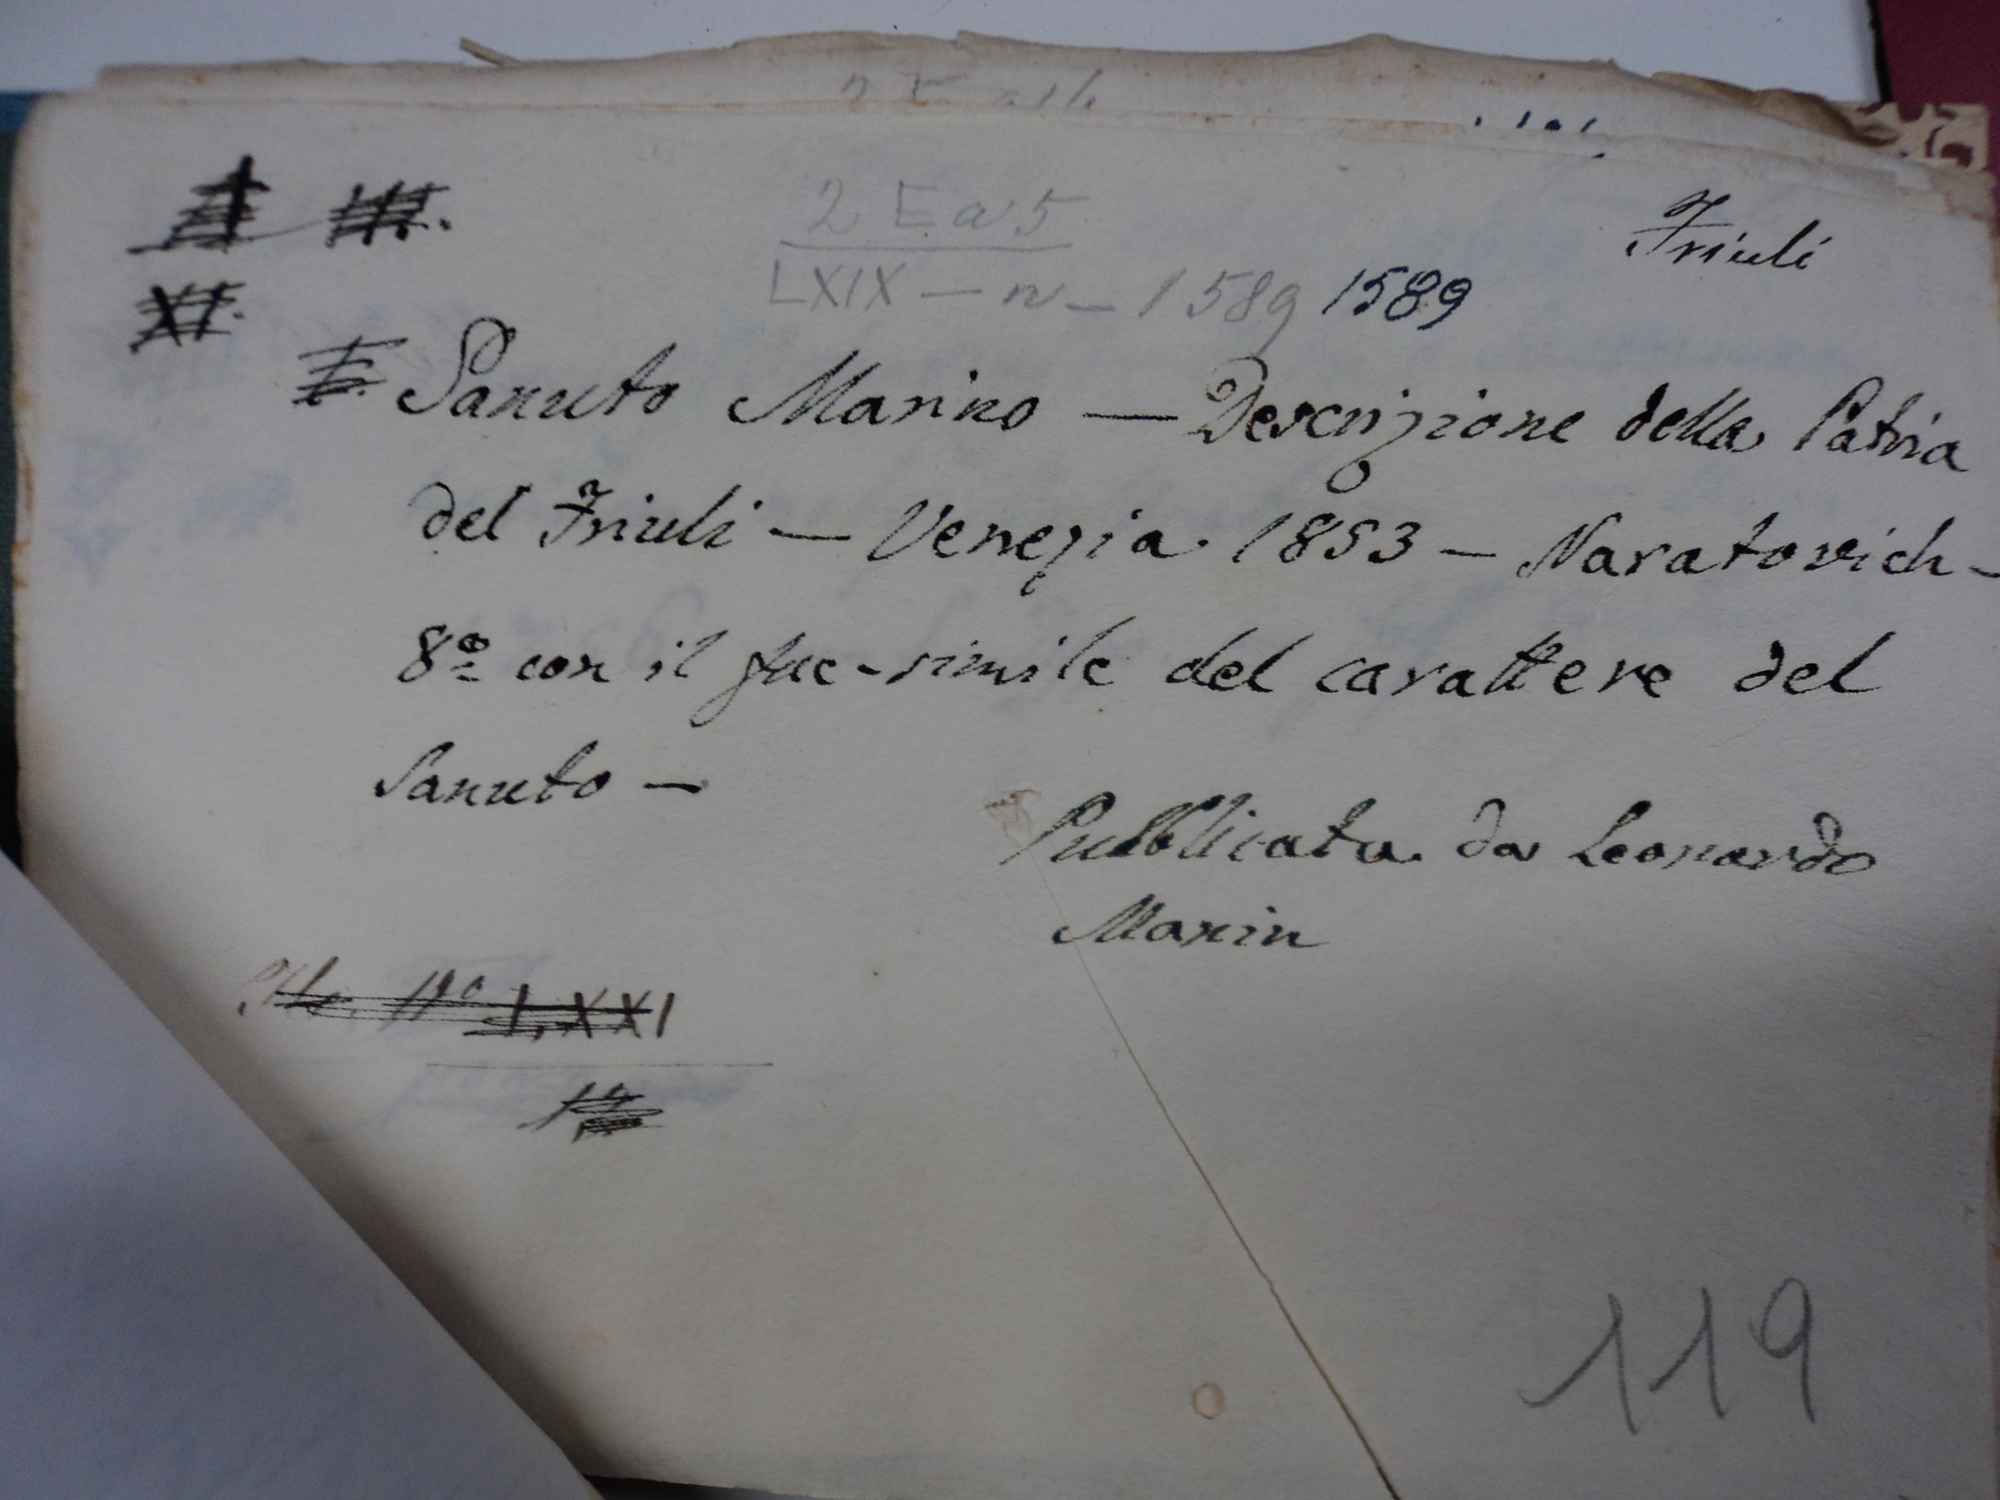 2 E a 5
Friuli
LXIX - n - 1589 1589
XI.
Sanuto Marino — Descrizione della Patria
del Friuli — Venezia 1853 — Naratovich -
8º con il fac-simile del carattere del
Sanuto —
Pubblicata da Leonardo
Manin
Nº LXXI
119